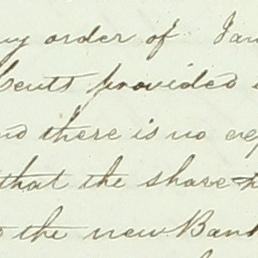 my order of Jan
Cents provided
and there is no exp
that the share
to the new Bank